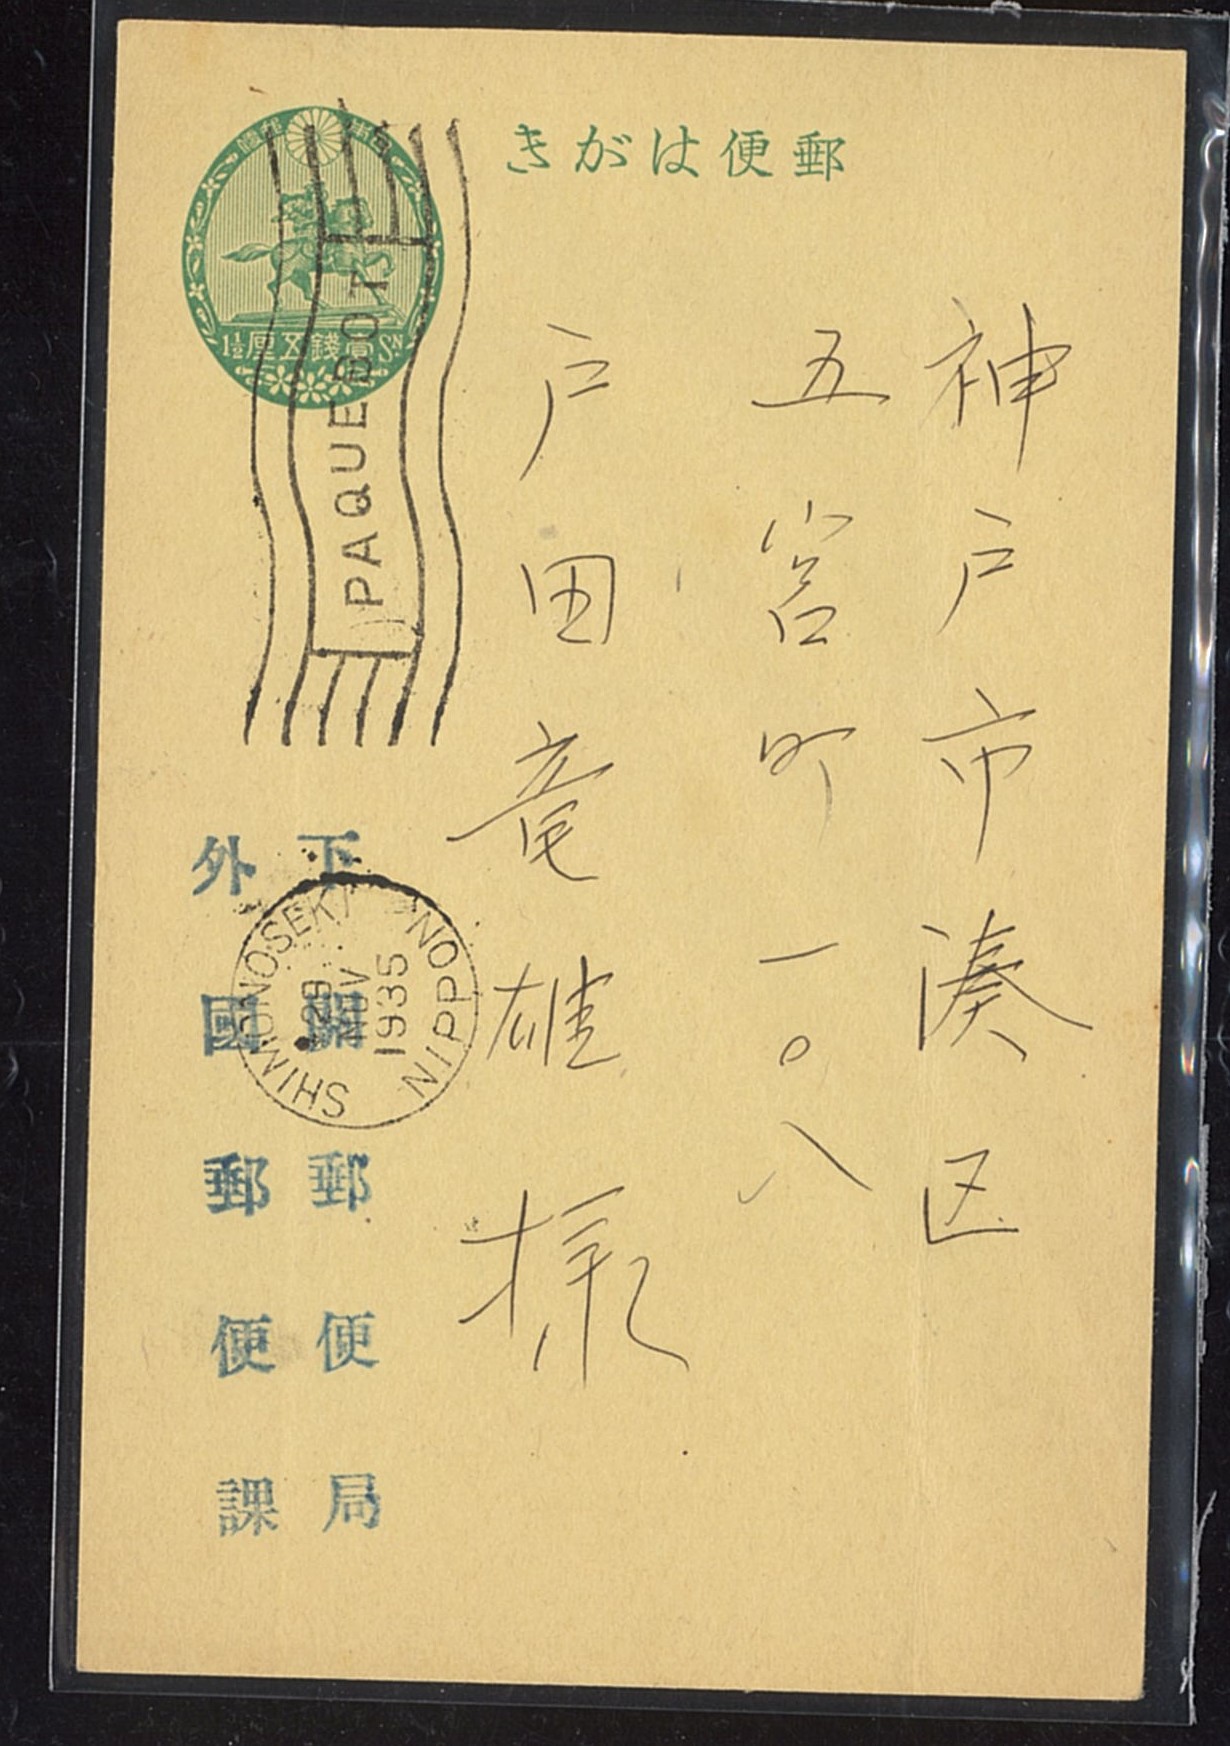 きがは便郵
1½ 厘五錢壹 SN
PAQUEBOT
神戸市湊区
五宮町一〇八
戸田竜雄様
SHIMONOSEKI NIPPON
29
NOV
1935
下関郵便局
外國郵便課